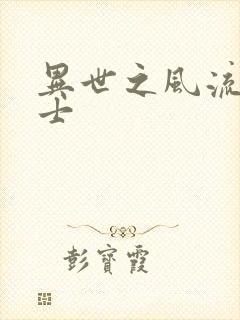 異世之風流
士
彭寶霞